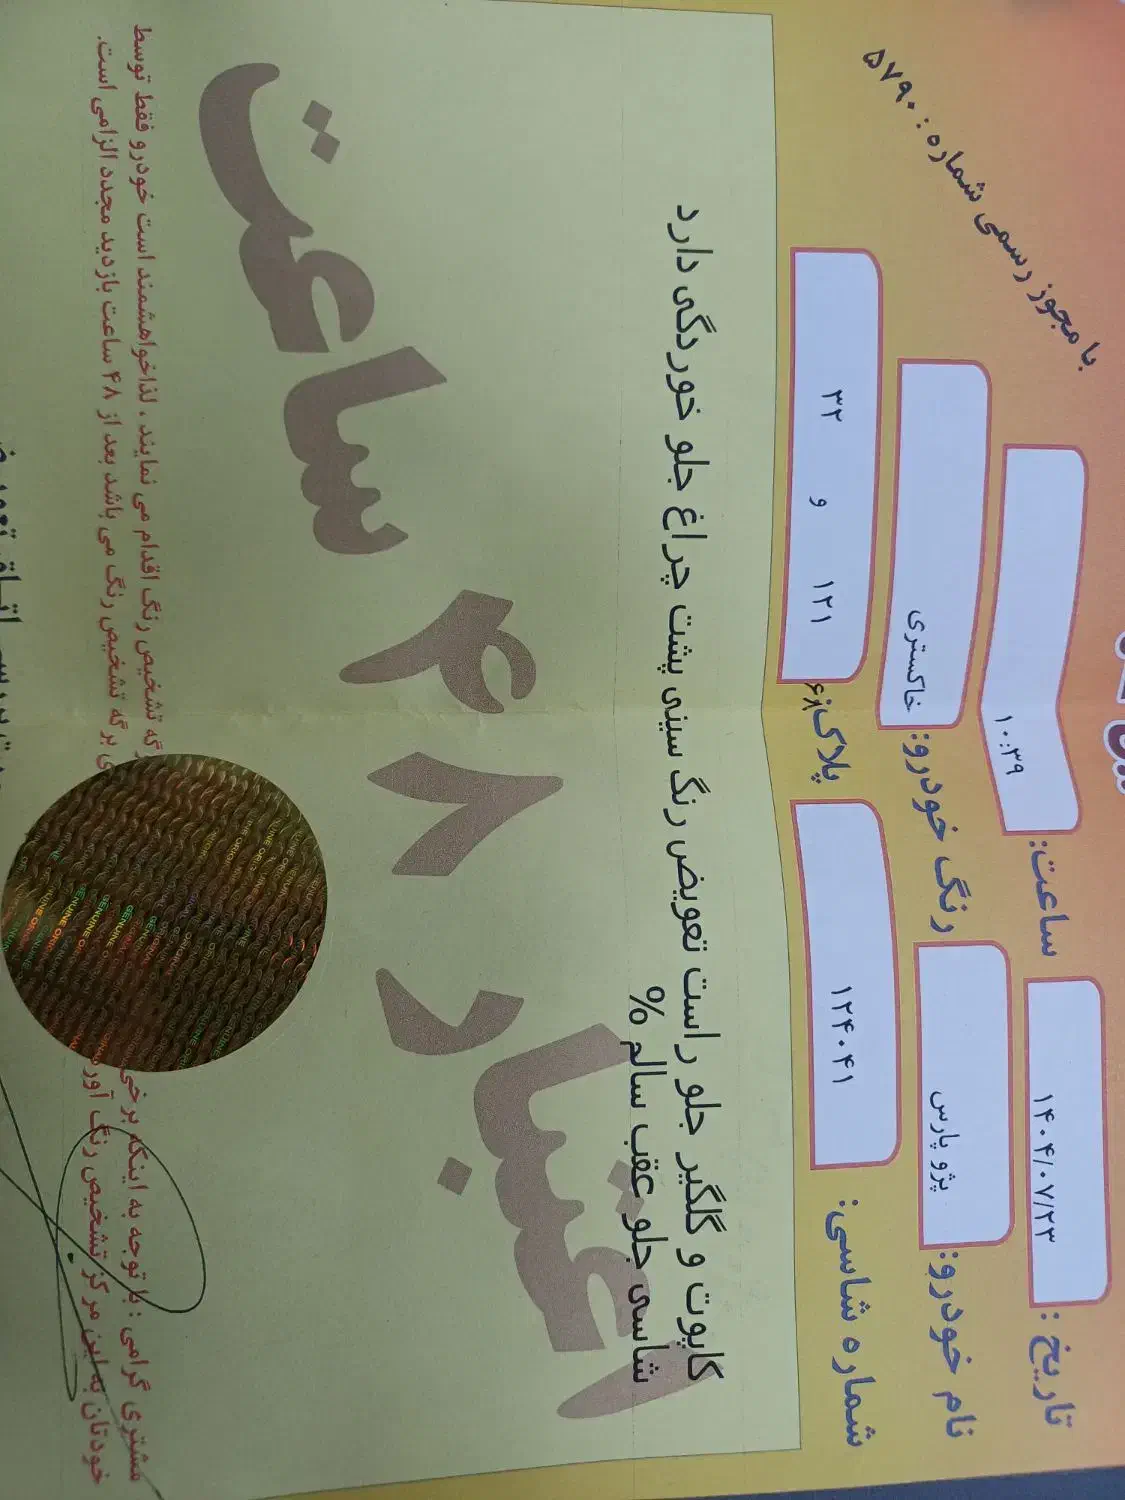 با مجوز رسمی شماره : ۵۷۹۰
تاریخ : ۱۴۰۴/۰۷/۲۳ ساعت: ۱۰:۳۹
نام خودرو: پژو پارس رنگ خودرو: خاکستری
شماره شاسی: ۱۲۴۰۴۱ پلاک: ۱۲۱ و ۳۲
کاپوت و گلگیر جلو راست تعویض رنگ سینی پشت چراغ جلو خوردگی دارد
شاسی جلو عقب سالم %
اعتبار ۴۸ ساعت
مشتری گرامی : با توجه به اینکه برخی گه تشخیص رنگ اقدام می نمایند ، لذا خواهشمند است خودرو فقط توسط
خودتان به این مرکز تشخیص رنگ آور ی برگه تشخیص رنگ می باشد بعد از ۴۸ ساعت بازدید مجدد الزامی است.
GENUINE ORIGINAL